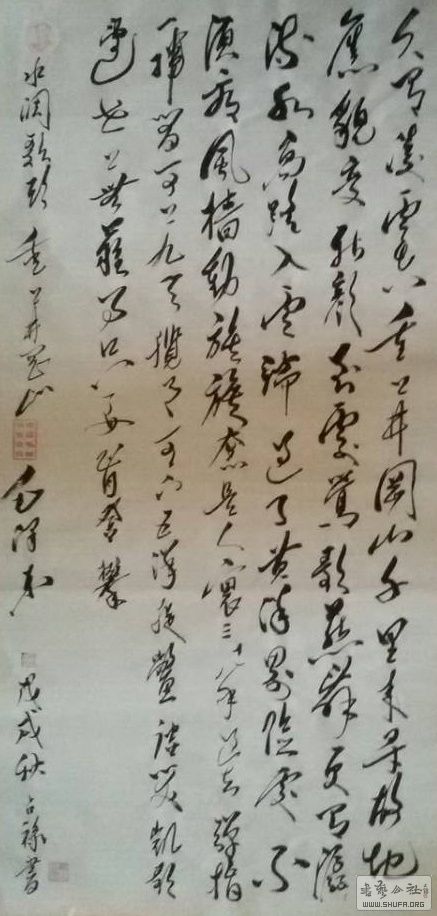 久有凌雲志重上井岡山千里来尋故地
舊貌變新顏到處鶯歌燕舞更有潺
流水高路入雲端過了黄洋界險處不
須看風檣動旌旗奮是人寰三十八年過去彈指
一揮間可上九天攬月可下五洋捉鱉談笑凱歌
還世上無難事只要肯登攀
水調歌頭 重上井岡山 毛澤东 戊戌秋 占禄書
書藝公社
WWW.SHUFA.ORG